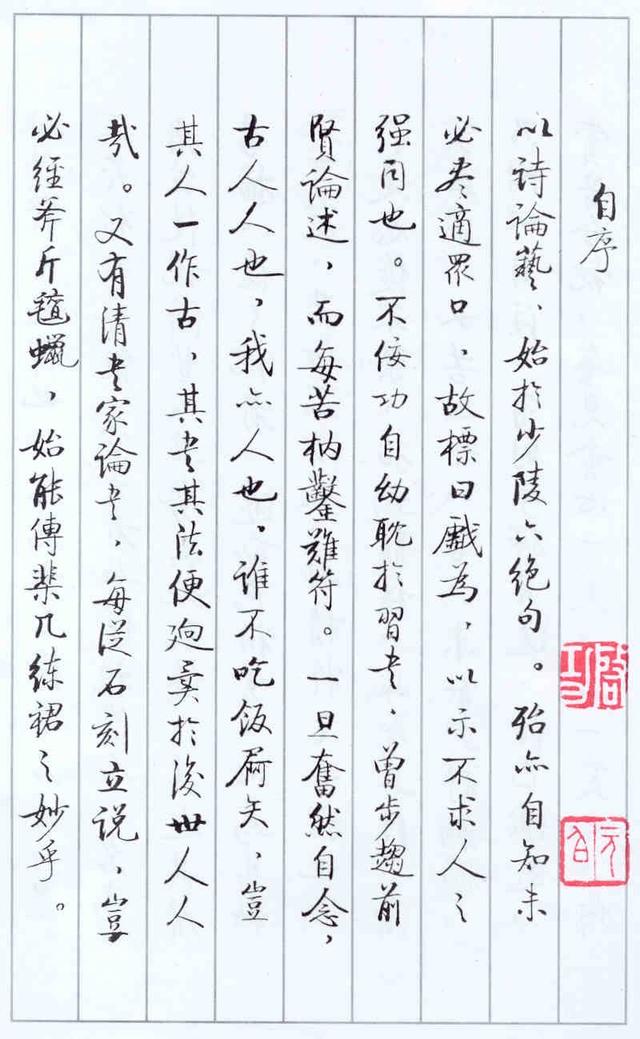 自序
以詩論藝、始於少陵六絕句。殆亦自知未
必盡適眾口、故標曰戲為、以示不求人之
强同也。不佞功自幼耽於習書、曾步趨前
賢論述、而每苦枘鑿難符。一旦奮然自念、
古人人也、我亦人也。誰不吃飯屙矢、豈
其人一作古、其書其法便迥異於後世人人
哉。又有清書家論書、每從石刻立說、豈
必經斧斤氊蠟、始能傳棐几練裙之妙乎。
啟功
元白